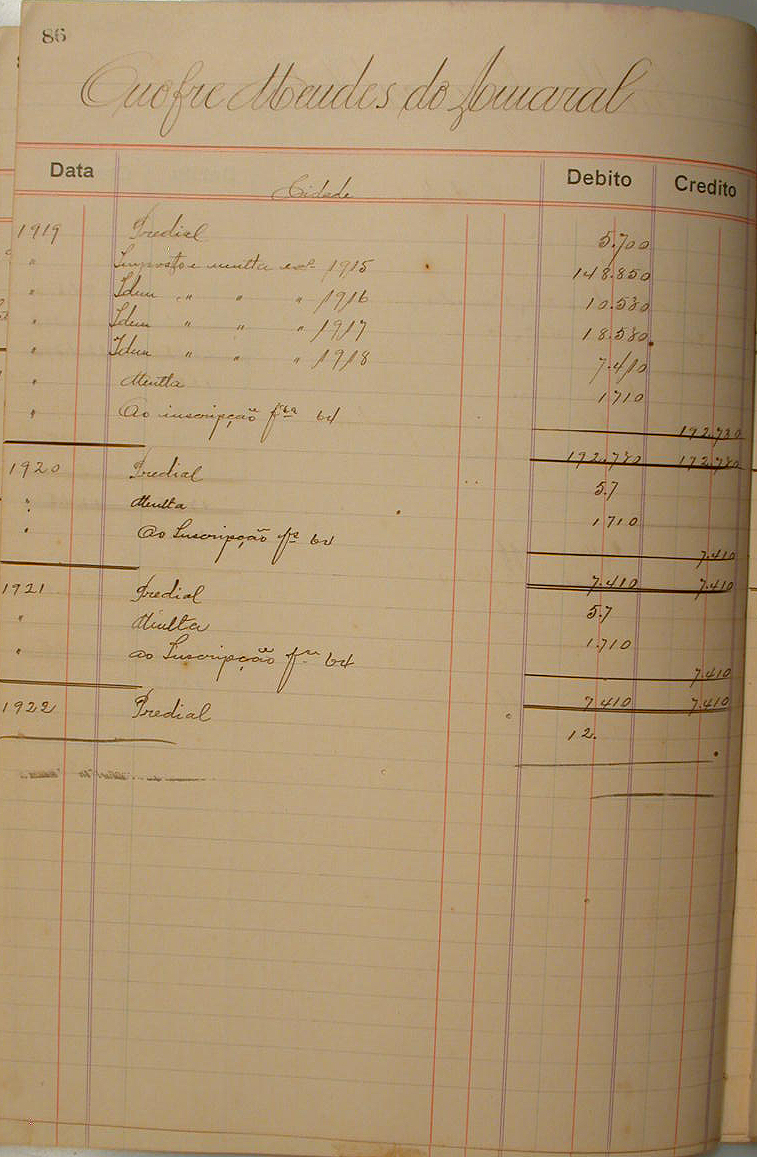 86
Onofre Mendes do Amaral
Data Cidade Debito Credito
1919 Predial 5.700
" Imposto e multa exº 1915 148.850
" Idem " " " 1916 10.530
" Idem " " " 1917 18.580
" Idem " " " 1918 7.410
" Multa 1.710
" Ao inscripção fªs 64 192.780
192.780 192.780
1920 Predial 5.7
" Multa 1.710
" Ao Inscripção fs 64 7.410
7.410 7.410
1921 Predial 5.7
" Multa 1.710
" ao Inscripção fs 64 7.410
7.410 7.410
1922 Predial 12.